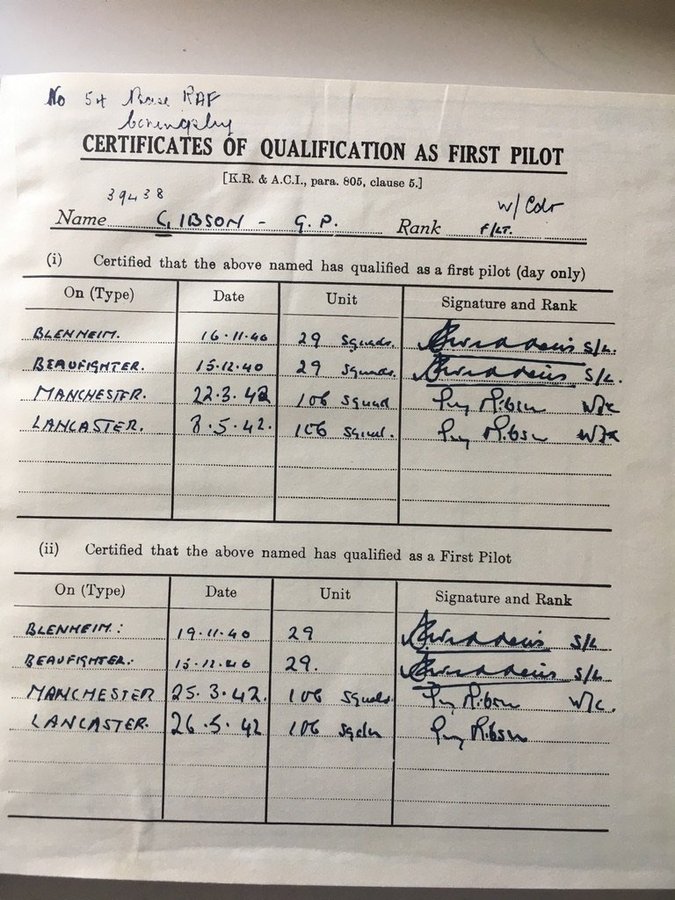 No 54 Base RAF
Coningsby
CERTIFICATES OF QUALIFICATION AS FIRST PILOT
[K.R. & A.C.I., para. 805, clause 5.]
39438 W/Cdr
Name GIBSON - G.P. Rank F/LT.
(i) Certified that the above named has qualified as a first pilot (day only)
On (Type) Date Unit Signature and Rank
BLENHEIM. 16.11.40 29 Squadn. S/L.
BEAUFIGHTER. 15.12.40 29 Squadn. S/L.
MANCHESTER. 22.3.42 106 Squad Guy Gibson W/C
LANCASTER. 8.5.42. 106 Squad. Guy Gibson W/C
(ii) Certified that the above named has qualified as a First Pilot
On (Type) Date Unit Signature and Rank
BLENHEIM: 19.11.40 29 S/L
BEAUFIGHTER: 15.12.40 29. S/L.
MANCHESTER 25.3.42. 106 Guy Gibson W/C.
LANCASTER. 26.5.42 106 Sqdn Guy Gibson